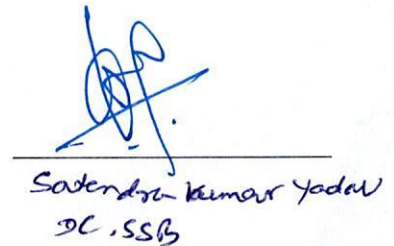 Satendra Kumar Yadav
DC, SSB